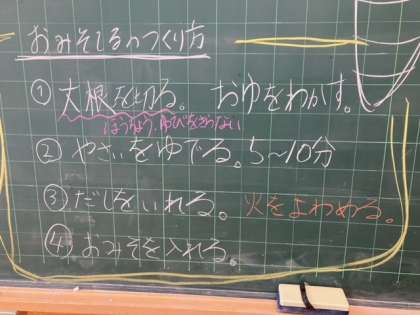 おみそしるのつくり方
①大根を切る。 おゆをわかす。
ほうちょう、ゆびをきらない
②やさいをゆでる。5~10分
③だしをいれる。火をよわめる。
④おみそを入れる。